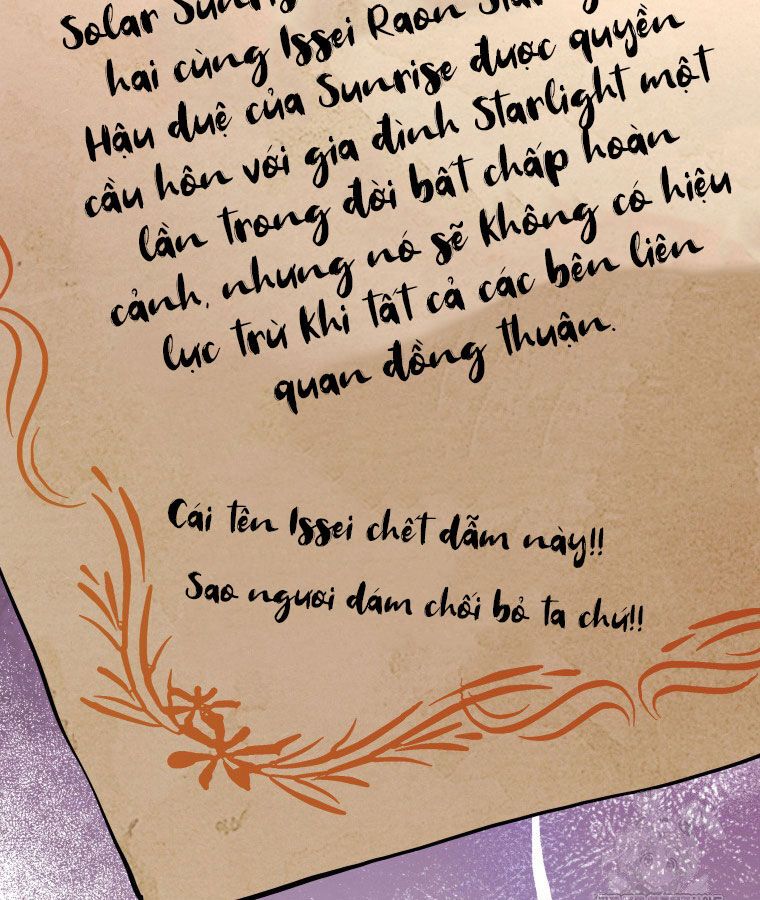 Solar Sunris
hai cùng Issei Raon Star
Hậu duệ của Sunrise được quyền
cầu hôn với gia đình Starlight một
lần trong đời bất chấp hoàn
cảnh, nhưng nó sẽ không có hiệu
lực trừ khi tất cả các bên liên
quan đồng thuận.
Cái tên Issei chết dẫm này!!
Sao ngươi dám chối bỏ ta chứ!!